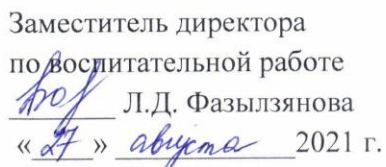 Заместитель директора
по воспитательной работе
Л.Д. Фазылзянова
« 27 » августа 2021 г.